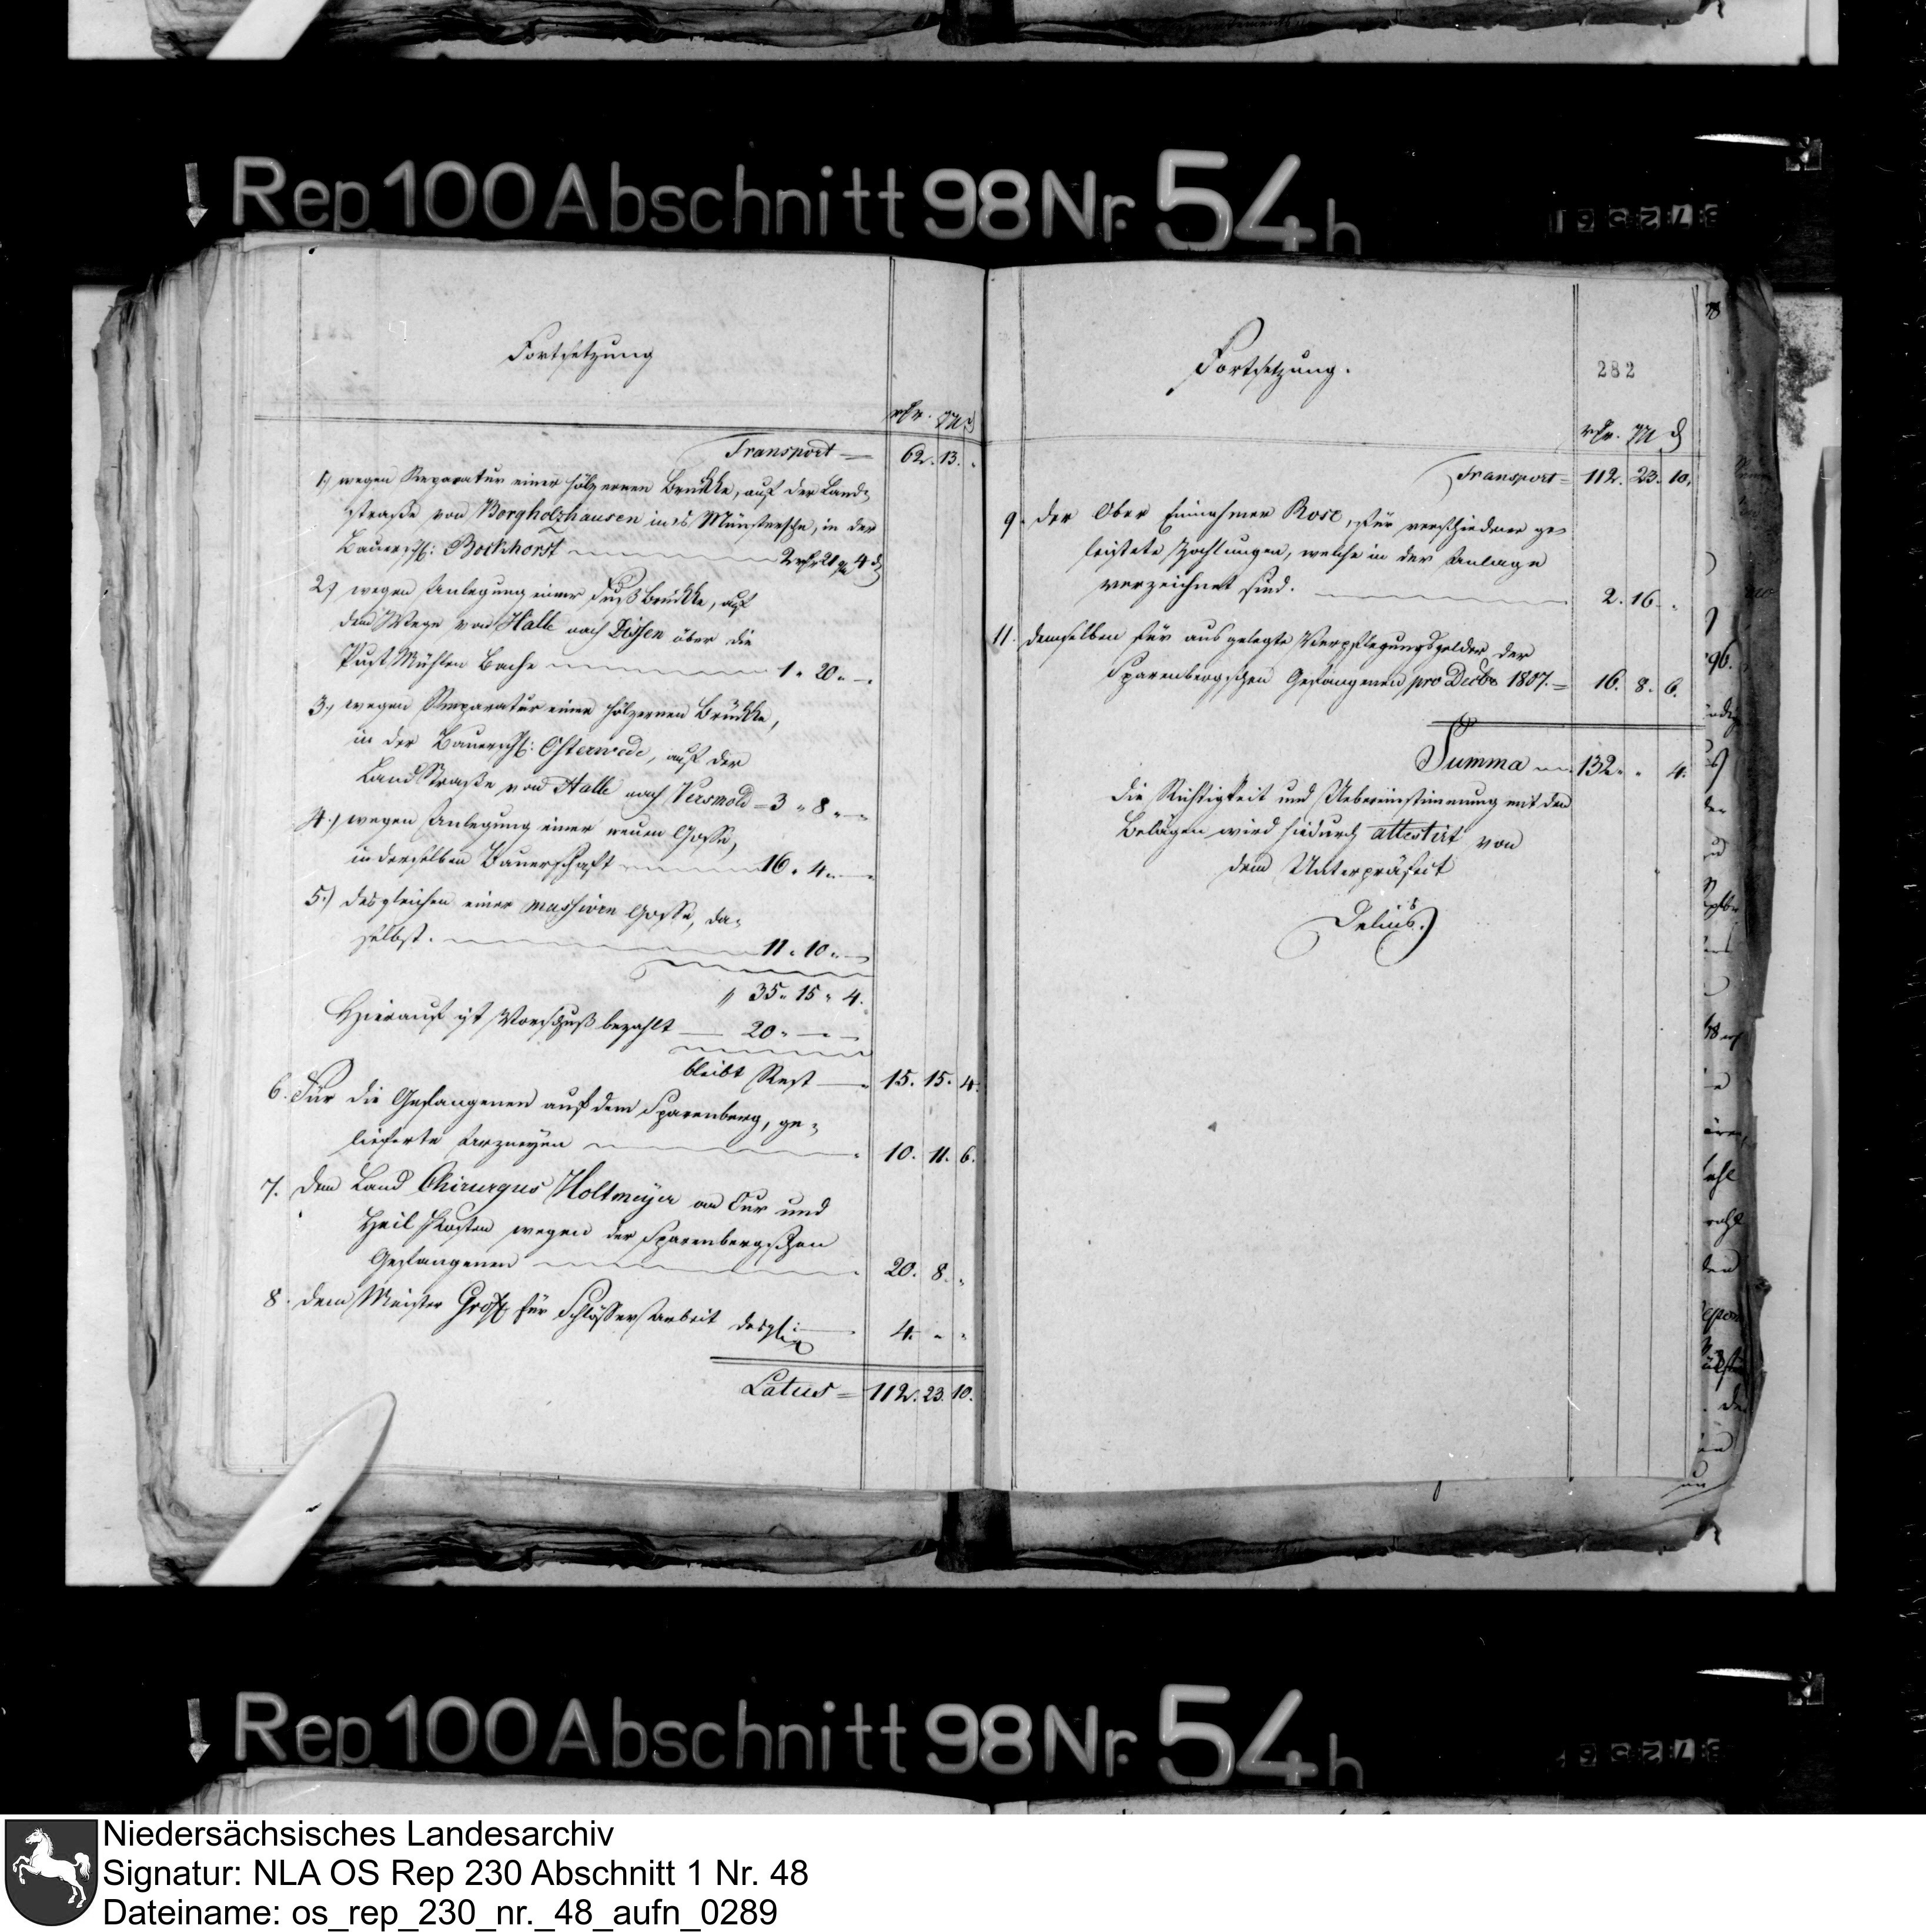 Rep. 100 Abschnitt 98 Nr. 54 h
Fortsetzung
rthr. ggr ₰
Transport = 62. 13. „
1.) wegen Reparatur einer hölzernen Brükke, auf der Land=
straße von Borgholzhausen in's Münstersche, in der
Bauersch: Bockhorst 2 rthr 21 ggr 4 ₰
2.) wegen Anlegung einer Fußbrükke, auf
dem Wege von Halle nach Dissen über die
Pust Mühlen Bache 1 „ 20 „ —
3.) wegen Reparatur einer hölzernen Brükke,
in der Bauersch: Osterwede, auf der
Land Straße von Halle nach Versmold = 3 „ 8 „ —
4.) wegen Anlegung einer neuen Gosse,
in derselben Bauerschaft 16 „ 4 „ —
5.) desgleichen einer massiven Gosse, da=
selbst. 11 „ 10 „ —
„ 35 „ 15 „ 4.
Hierauf ist Vorschuß bezahlt — 20 „ — —
bleibt Rest — 15. 15. 4.
6. Für die Gefangenen auf dem Sparenberg, ge=
lieferte Arzneyen 10. 11. 6.
7. dem Land Chirurgus Holtmeyer an Cur und
Heil Kosten wegen der Sparenbergschen
Gefangenen 20. 8. „
8. dem Meister Groß für Schlösser Arbeit desgl: 4. „ „
Latus = 112. 23. 10.
Fortsetzung.
282
rthr. ggr ₰
Transport = 112. 23. 10.
9. der Ober Einnehmer Rose, für verschiedene ge=
leistete Zahlungen, welche in der Anlage
verzeichnet sind. 2. 16. „
11. demselben für ausgelegte Verpflegungsgelder der
Sparenbergschen Gefangenen pro Decbr 1807. = 16. 8. 6.
Summa 132. „ 4.
Die Richtigkeit und Uebereinstimmung mit den
Belägen wird hiedurch attestirt von
dem Unterpräfect
Delius.
Rep. 100 Abschnitt 98 Nr. 54 h
Niedersächsisches Landesarchiv
Signatur: NLA OS Rep 230 Abschnitt 1 Nr. 48
Dateiname: os_rep_230_nr._48_aufn_0289